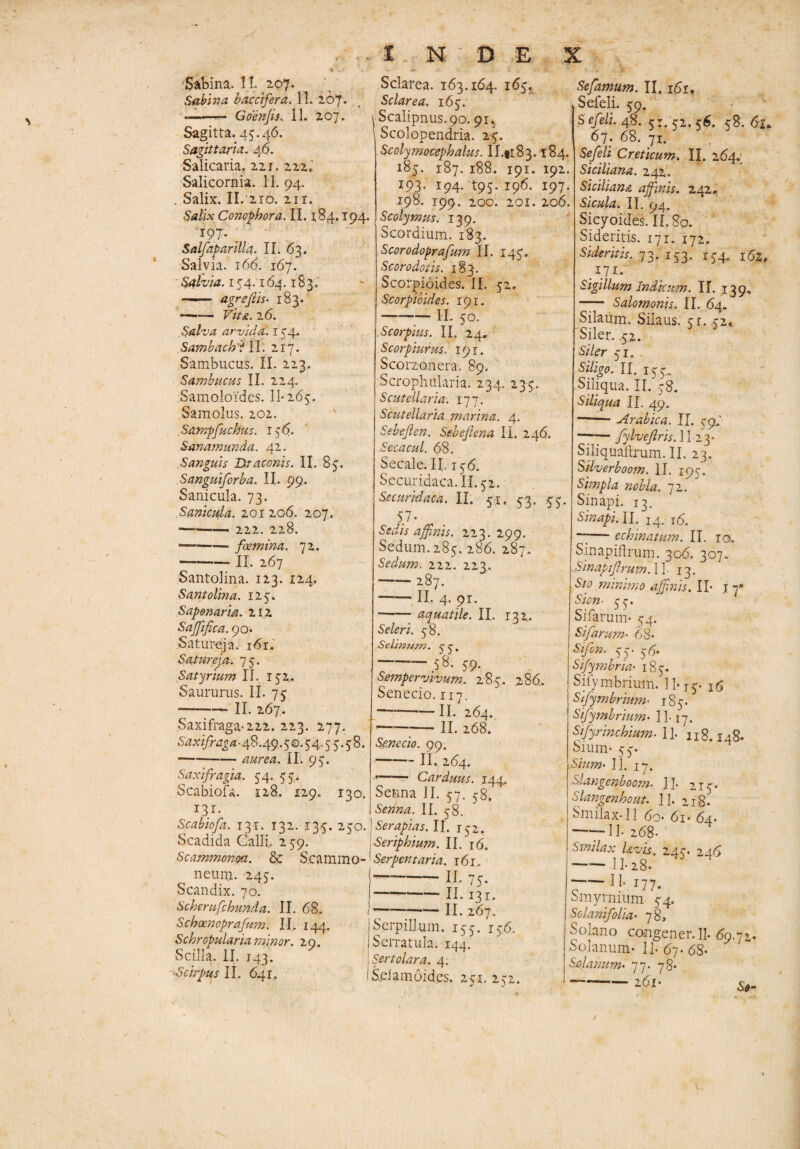 INDEX
Sabina. II. 207.
Sabina baccifera. II. 207.
—— Goënsis. II. 207.
Sagitta. 45. 46.
Sagittaria. 46.
Salicaria. 221. 222.
Salicornia. II. 94.
Salix. II. 210. 211.
Salix Conophora. II. 184. 194.
197.
Salsaparilla. II. 63.
Salvia. 166. 167.
Salvia. 154. 164. 183.
—— agrestis. 183.
—— Vitæ. 26.
Salva arvida. 154.
Sambach? II. 217.
Sambucus. II. 223.
Sambucus II. 224.
Samoloïdes. II. 265.
Samolus. 202.
Sampsuchus. 156.
Sanamunda. 42.
Sanguis Draconis. II. 85.
Sanguisorba. II. 99.
Sanicula. 73.
Sanicula. 201 206. 207.
—— 222. 228.
—— fœmina. 72.
—— II. 267
Santolina. 123. 124.
Santolina. 125.
Saponaria. 212
Saffifica. 90.
Satureja. 161.
Satureja. 75.
Satyrium II. 152.
Saururus. II. 75
—— II. 267.
Saxifraga. 222. 223. 277.
Saxifraga. 48. 49. 50. 54. 55. 58.
—— aurea. II. 95.
Saxifragia. 54. 55.
Scabiosa. 128. 129. 130.
131.
Scabiosa. 131. 132. 135. 250.
Scadida Calli. 259.
Scammonea. & Scammo-
neum. 245.
Scandix. 70.
Scheruschunda. II. 68.
Schœnoprasum. II. 144.
Schropularia minor. 29.
Scilla. II. 143.
Scirpus II. 641.
Sclarea. 163. 164. 165.
Sclarea. 165.
Scalipnus. 90. 91.
Scolopendria. 25.
Scolymocephalus. II. 183. 184.
185. 187. 188. 191. 192.
193. 194. 195. 196. 197.
198. 199. 200. 201. 206.
Scolymus. 139.
Scordium. 183.
Scorodoprasum II. 145.
Scorodotis. 183.
Scorpioides. II. 52.
Scorpioides. 191.
—— II. 50.
Scorpius. II. 24.
Scorpiurus. 191.
Scorzonera. 89.
Scrophularia. 234. 235.
Scutellaria. 177.
Scutellaria marina. 4.
Sebesten. Sebestena II. 246.
Secacul. 68.
Secale. II. 156.
Securidaca. II. 52.
Securidaca. II. 51. 53. 55.
57.
Sedis affinis. 223. 299.
Sedum. 285. 286. 287.
Sedum. 222. 223.
—— 287.
—— II. 4. 91.
—— aquatile. II. 132.
Seleri. 58.
Selinum. 55.
—— 58. 59.
Sempervivum. 285. 286.
Senecio. 117.
—— II. 264.
—— II. 268.
Senecio. 99.
—— II. 264.
—— Carduus. 144.
Senna II. 57. 58.
Senna. II. 58.
Serapias. II. 152.
Seriphium. II. 16.
Serpentaria. 161.
—— II. 75.
—— II. 131.
—— II. 267.
Serpillum. 155. 156.
Serratula. 144.
Sertolara. 4.
Sesamoides. 251. 252.
Sesamum. II. 161.
Seseli. 59.
Seseli. 48. 51. 52. 56. 58. 61.
67. 68. 71.
Seseli Creticum. II. 264.
Siciliana. 242.
Sicilianæ affinis. 242.
Sicula. II. 94.
Sicyoides. II. 80.
Sideritis. 171. 172.
Sideritis. 73. 153. 154. 162.
171.
Sigillum Indicum. II. 139.
—— Salomonis. II. 64.
Silaum. Silaus. 51. 52.
Siler. 52.
Siler 51.
Siligo. II. 155.
Siliqua. II. 58.
Siliqua II. 49.
—— Arabica. II. 59.
—— sylvestris. II 23.
Siliquastrum. II. 23.
Silverboom. II. 195.
Simpla nobla. 72.
Sinapi. 13.
Sinapi. II. 14. 16.
—— echinatum. II. 10.
Sinapistrum. 306. 307.
Sinapistrum. II. 13.
Sio minimo affinis. II. 17.
Sion. 55.
Sifarum. 54.
Sifarum. 68.
Sison. 55. 56.
Sisymbria. 185.
Sisymbrium. II. 15. 16
Sisymbrium. 185.
Sisymbrium. II. 17.
Sisyrinchium. II. 118. 148.
Sium. 55.
Sium. II. 17.
Slangenboom. II. 215.
Slangenhout. II. 218.
Smilax. II 60. 61. 64.
—— II. 268.
Smilax lævis. 245. 246
—— II. 28.
—— II. 177.
Smyrnium 54.
Solanifolia. 78.
Solano congener. II. 69. 72.
Solanum. II. 67. 68.
Solanum. 77. 78.
—— 261.
So-